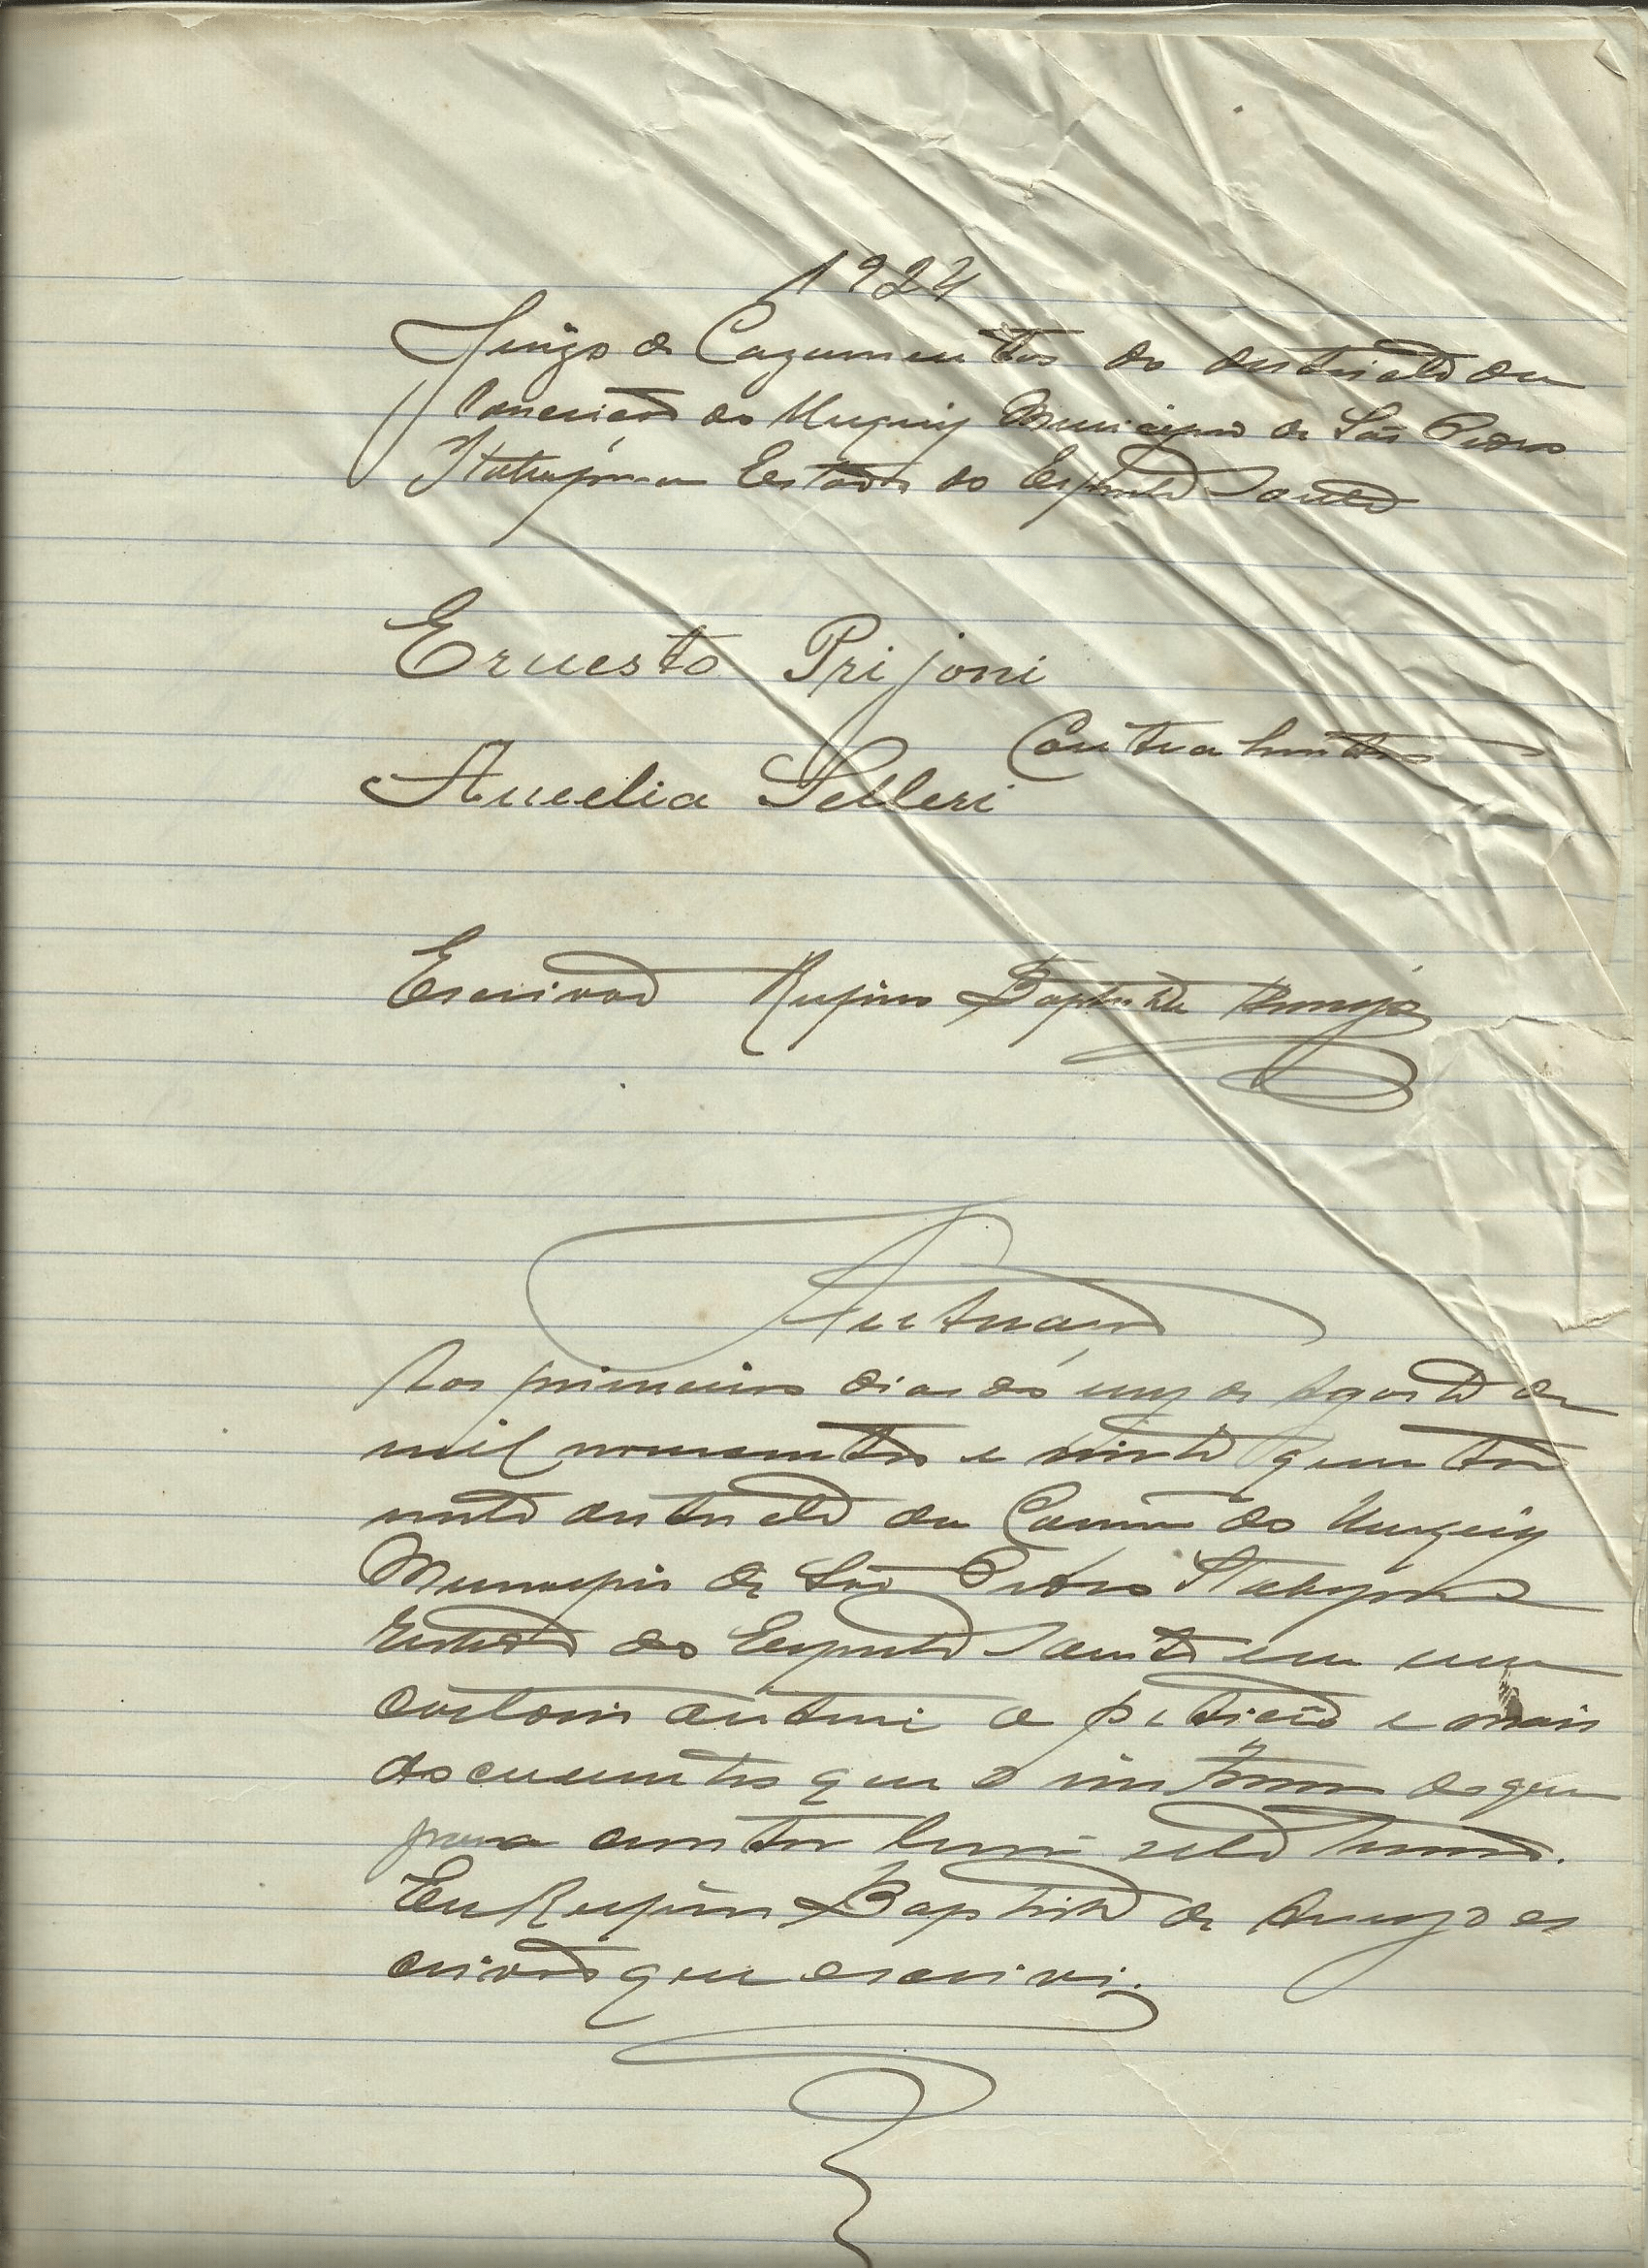 1924
Juizo de Cazamentos do districto da
Conceicão do Muquy Municipio de São Pedro
Itabapoana Estado do Espirito Santo
Ernesto Prijoni
Contrahentes
Aucelia Selleri
Escrivão Rufino Baptista Araujo
Autuação
Aos primeiro dias do mez de Agosto de
mil novecentos e vinte quatro
neste districto da Conceição do Muquy
Municipio de São Pedro Itabapoana
Estado do Espirito Santo em meu
cartorio autuei a petição e mais
documentos que de que
para constar lavrei este termo.
Eu Rufino Baptista de Araujo es
crivão que escrivi.